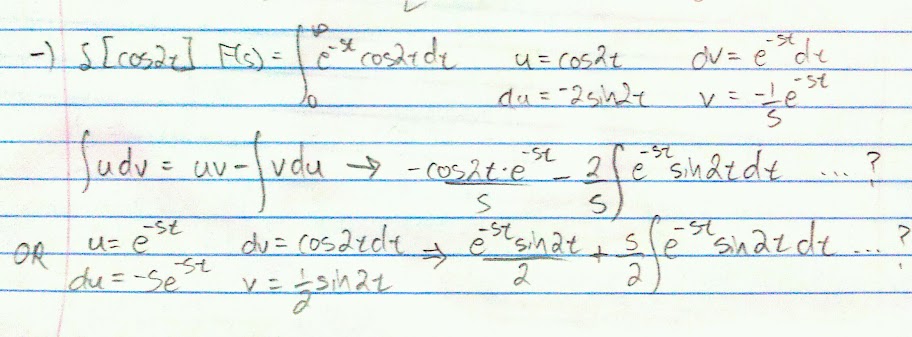 -) L[cos2t] F(s) = ∫₀^∞ e^-st cos2t dt u = cos2t dv = e^-st dt
du = -2sin2t v = -1/s e^-st
∫udv = uv - ∫vdu → -cos2t·e^-st/s - 2/s ∫e^-st sin2t dt ... ?
OR u = e^-st dv = cos2t dt → e^-st sin2t/2 + s/2 ∫e^-st sin2t dt ... ?
du = -se^-st v = 1/2 sin2t